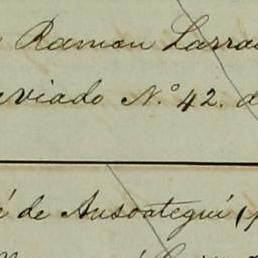 Ramon Larra
viado N.° 42. d
é de Ansoategui (p